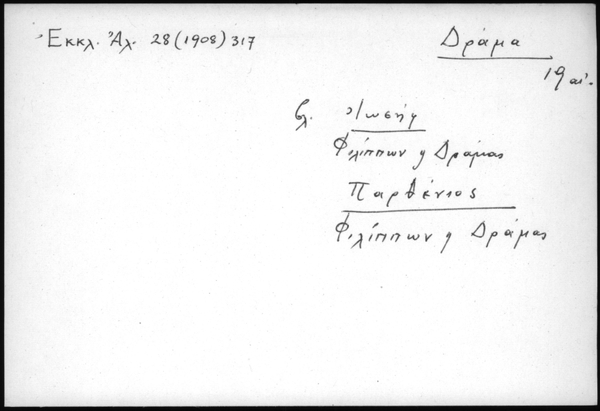 Ἐκκλ. Ἀλ. 28 (1908) 317
Δράμα
19 αἰ.
βλ. Ἰωσήφ
Φιλίππων ἡ Δράμας
Παρθένιος
Φιλίππων ἡ Δράμας